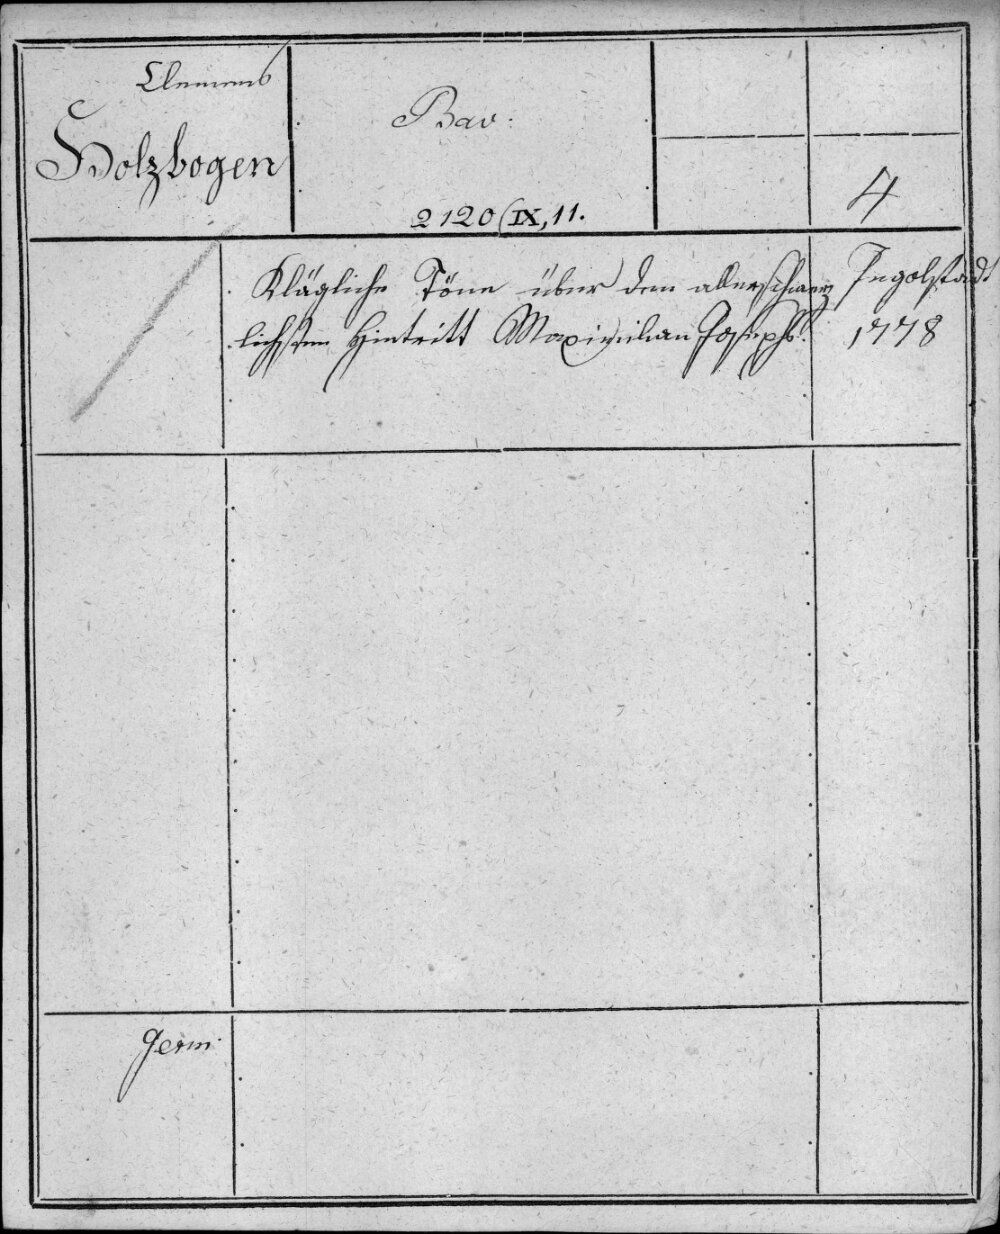 Clemens
Holzbogen
Bav.
2120 (IX, 11.
4
Klägliche Töne über den allerschmerz
lichsten Hintritt Maximilian Josephs.
Ingolstadt
1778
Germ.